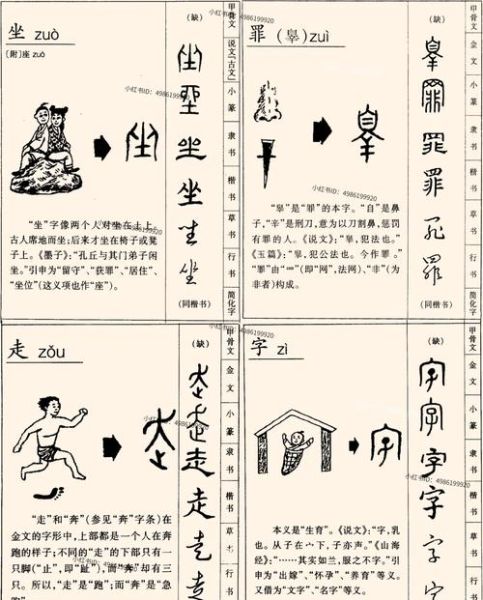 坐 zuò
〔附〕座 zuò
(缺)
坐
坐
坐
坐
坐
坐
(同楷书)
甲骨文
说文「古文」
小篆
隶书
楷书
草书
行书
简化字
“坐”字像两个人对坐在土上。
古人席地而坐;后来才坐在椅子或凳
子上。《墨子》:“孔丘与其门弟子闲
坐。”引申为“留守”、“获罪”、“居住”、
“坐位”(这义项也作“座”)。
小红书ID: 4986199920
罪 (辠) zuì
(缺)
辠
罪
罪
罪
罪
罪
(同楷书)
甲骨文
金文
小篆
隶书
楷书
草书
行书
简化字
“辠”是“罪”的本字。“自”是鼻
子,“辛”是刑刀,意为以刀割鼻,惩罚
有罪的人。《说文》:“辠,犯法也。”
《玉篇》:“辠,犯公法也。今作罪。”
“罪”由“罒”(即“网”,法网)、“非”(为
非者)构成。
小红书ID: 4986199920
走 zǒu
(缺)
走
走
走
走
走
走
甲骨文
金文
小篆
隶书
楷书
草书
行书
“走”和“奔”(参见“奔”字条)在
金文的字形中,上部都是一个人在奔
跑的样子;不同的“走”的下部只有一
只脚(“止”,即“趾”),而“奔”却有三
只。所以,“走”是“跑”;而“奔”是“急
跑”
小红书ID: 4986199920
字 zì
(缺)
字
字
字
字
字
字
甲骨文
金文
小篆
隶书
楷书
草书
行书
本义是“生育”。《说文》:“字,乳
也。从子在宀下,子亦声。”《山海
经》:“……其实如兰,服之不字。”引
申为“出嫁”、“怀孕”、“养育”等义。
又借为“文字”、“名字”等义。
小红书ID: 4986199920